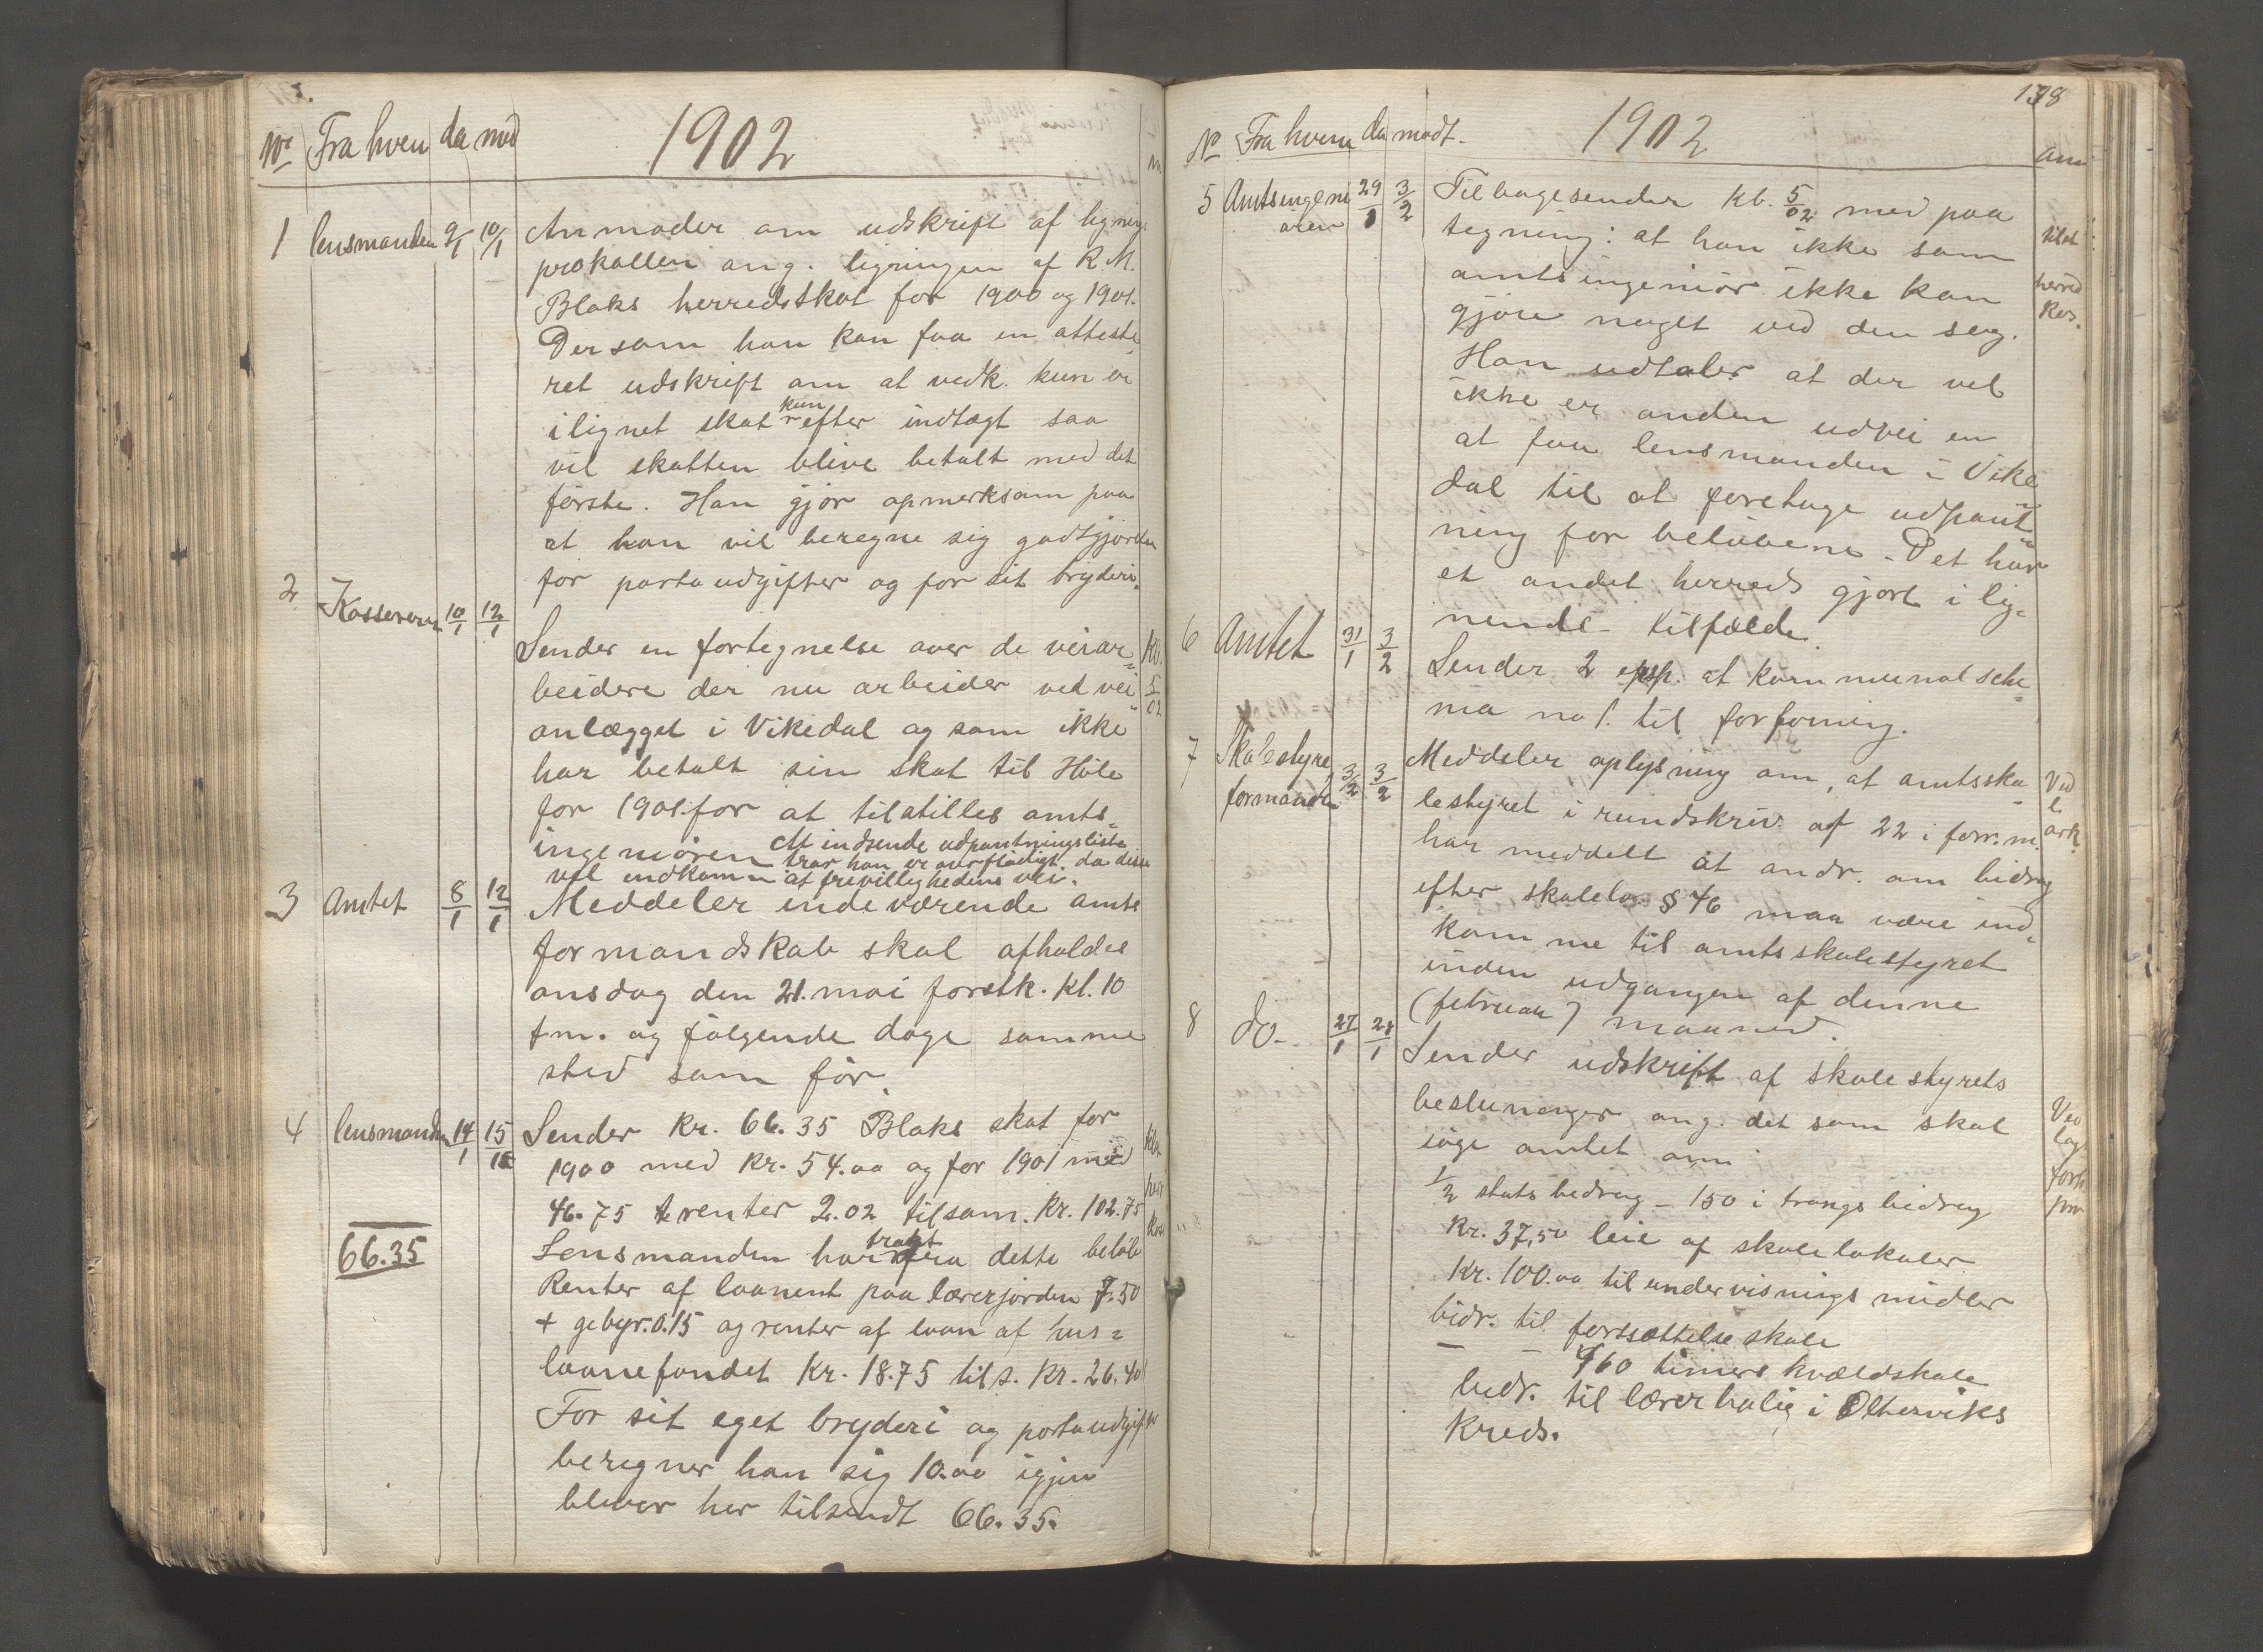 No Fra hven da mod 1902
1 lensmanden 9/1 10/1 Anmoder om udskrift af ligning
prokollen ang. ligningen af R. M.
Blaks herredsskat for 1900 og 1901.
Dersom han kan faa en atteste
ret udskrift om at vedk. kun er
ilignet skat kun efter indtægt saa
vil skatten blive betalt med det
første. Han gjør opmerksom paa
at han vil beregne sig godtgjørelse
for portoudgifter og for sit bryderi.
2 Kassereren 10/1 12/1
Sender en fortegnelse over de veiar= Kb.
beidere der nu arbeider ved vei 5/02
anlægget i Vikedal og som ikke
har betalt sin skat til Høle
for 1901. for at tilstilles amts=
ingeniøren At indsende udpantningsliste
tror han er overflødigt da disse
vil indkomm at frevillighedens vei.
3 Amtet 8/1 12/1 Meddeler indeværende amts
formandskab skal afholdes
onsdag den 21. mai førstk. kl. 10
fm. og følgende dage samme
sted som før.
4 lensmanden 14/1 15/1 Sender kr. 66.35 Blaks skat for
1900 med kr. 54.00 og for 1901 med
46.75 + renter 2.02 tilsam. kr. 102.75
66.35
Lensmanden har trakt fra dette beløb
Renter af laanent paa lærerjorden 7.50
+ gebyr. 0.15 og renter af laan af hus=
laanefondet kr. 18.75 tils. kr. 26.40
For sit eget bryderi og portoudgifter
beregner han sig 10.00 igjen
bliver her tilsendt 66.35.
138
No Fra hvem da modt. 1902 Anm
5 Amtsingeni
øren 29/1 3/2 Tilbagesender Kb. 5/02 med paa
tegning: at han ikke som
amtsingeniør ikke kan
gjøre noget ved den sag.
herred
Kas.
Han udtaler at der vel
ikke er anden udvei en
at faa lensmanden i Vike
dal til at foretage udpant=
ning for beløbene. Det har
et andet herreds gjort i lig=
nende tilfælde.
6 Amtet 31/1 3/2
Sender 2 eksp. at kommunal sche=
ma no 1. til forforning.
7 Skolestyre
formanden 3/2 3/2 Meddeler oplysning om, at amtssko
lestyret i rundskriv. af 22 i forr. m.
har meddelt at andr. om bidrag
efter skolelov § 46 maa være ind=
komme til amtsskolestyret
inden udgangen af denne
(februar) maaned.
Ved
l.
ark.
8 do- 27/1 28/1
Sender udskrift af skolestyrets
beslutninger ang. det som skal
søge amtet om
1/2 statsbidrag - 150 i trangsbidrag
kr. 37,50 leie af skolelokaler
kr. 100.00 til undervisnings midler
bidr. til fortsættelse skole
— — 960 timers kvældskole
bidr. til lærerbolig i Oltesviks
kreds.
Ved
lag
forh
pro